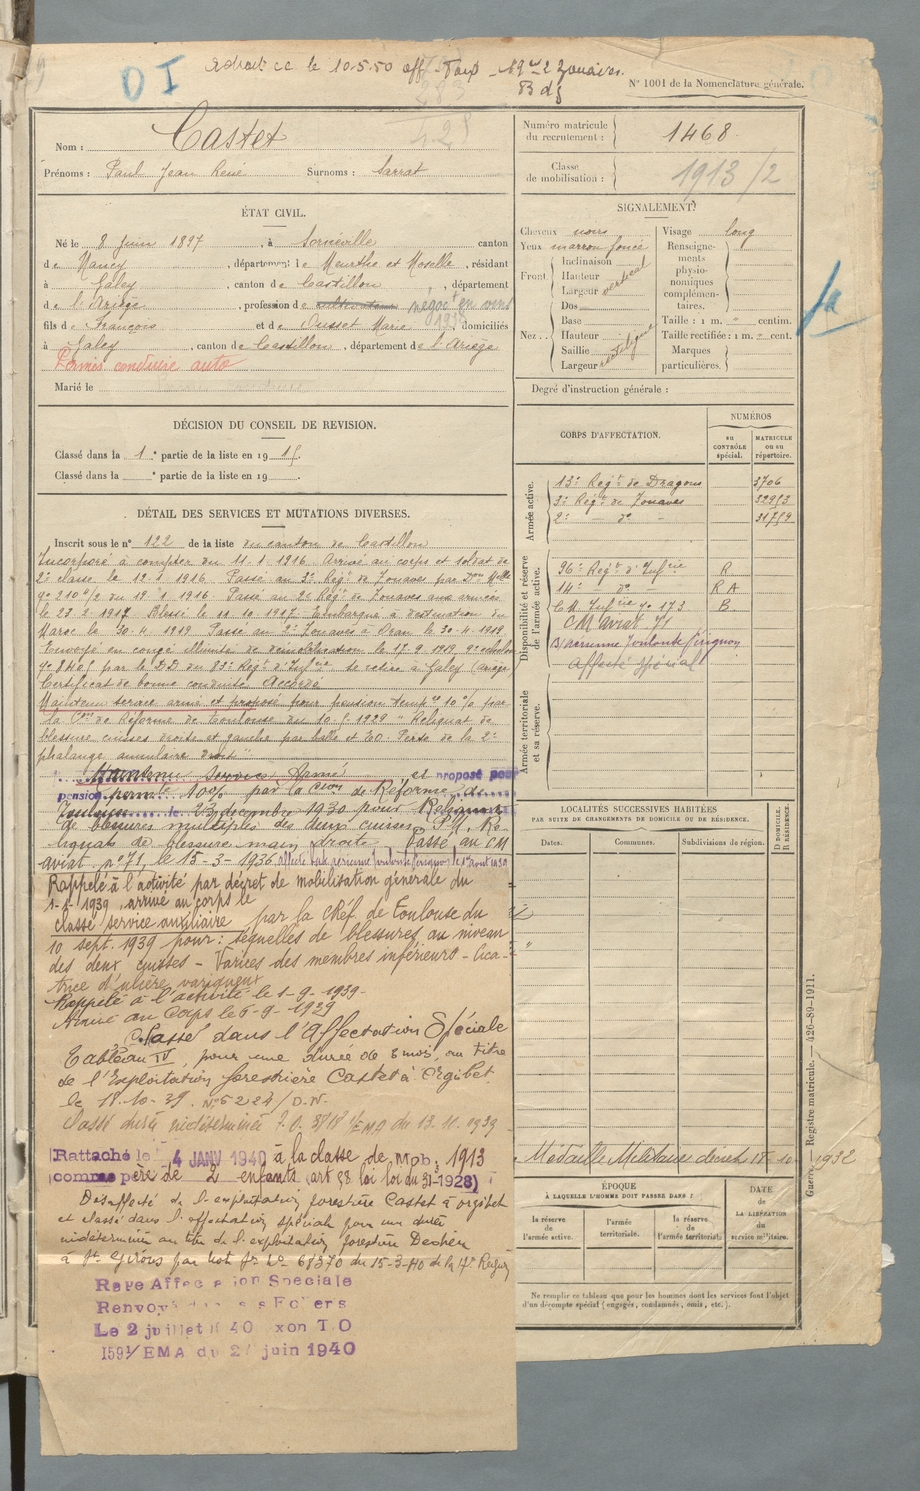 DI
Extrait cc le 10.5.50
N° 1001 de la Nomenclature générale.
Nom : Castet
Prénoms : Paul Jean René Surnoms : Sarrat
ÉTAT CIVIL.
Né le 8 Juin 1897, à Sornéville canton
de Nancy, département de Meurthe et Moselle, résidant
à Galey, canton de Castillon, département
de l'Ariège, profession de cultivateur négoct en vins
1938
fils de François et de Ousset Marie, domiciliés
à Galey, canton de Castillon, département de l'Ariège
Permis conduire auto
Marié le
DÉCISION DU CONSEIL DE REVISION.
Classé dans la 1e partie de la liste en 1915.
Classé dans la e partie de la liste en 19 .
DÉTAIL DES SERVICES ET MUTATIONS DIVERSES.
Inscrit sous le n° 122 de la liste du canton de Castillon
Incorporé à compter du 11-1-1916. Arrivé au corps et soldat de
2e classe le 12.1.1916. Passé au 3e Régt de Zouaves par Don Mlle
n° 210 9/2 du 19.1.1916. Passé au 2e Régt de Zouaves aux armées
le 23.2.1917. Blessé le 11.10.1917. Embarqué à destination du
Maroc le 30.4.1919. Passé au 2e Zouaves à Oran le 30.4.1919
Envoyé en congé illimité de démobilisation le 17.9.1919, 9e échelon
n° 8405 par le D.D. du 83e Régt d'Infie. Se retire à Galey (Ariège)
Certificat de bonne conduite Accordé
Maintenu service armé et proposé pour pension tempre 10% par
la Con de Réforme de Toulouse du 10.5.1929 "Reliquat de
blessure cuisses droite et gauche par balle et E.O. Perte de la 2e
phalange annulaire droit"
Maintenu Service Armé et proposé pour
pension permte 10% par la Cion de Réforme de
Toulouse le 23 décembre 1930 pour Reliquat
de blessures multiples des deux cuisses. 2°/ Re-
liquats de blessure main droite. Passé au CM
aviat. n°71, le 15-3-1936
Rappelé à l'activité par décret de mobilisation générale du
1-9-1939, arrivé au corps le
classé service auxiliaire par la CRéf. de Toulouse du
10 sept. 1939 pour : séquelles de blessures au niveau
des deux cuisses - Varices des membres inférieurs - Cica-
trice d'ulcère variqueux
Rappelé à l'activité le 1-9-1939-
Arrivé au corps le 6-9-1939
Classé dans l'Affectation Spéciale
Tableau IV, pour une durée de 3 mois, au titre
de l'Exploitation forestière Castet à Orgibet
le 18-10-39, N° 5224/D.N.
Classé durée indéterminée 1/EMA du 13.10.1939
Rattaché le 4 JANV 1940 à la classe de Mob. 1913
comme père de 2 enfants (art 58 loi du 31-3-1928)
Désaffecté de l'exploitation forestière Castet à Orgibet
et classé dans l'affectation spéciale pour une durée
indéterminée au titre de l'exploitation forestière
à St Girons par Not n° 68370 du 15-3-40 de la 17e Région
Rayé Affectation Spéciale
Renvoyé dans ses Foyers
Le 2 juillet 1940
1591/EMA du 27 juin 1940
Numéro matricule du recrutement : 1468
Classe de mobilisation : 1913/2
SIGNALEMENT.
Cheveux noirs
Yeux marron foncé
Front. Inclinaison
Hauteur vertical
Largeur
Nez. Dos
Base
Hauteur
Saillie rectiligne
Largeur
Visage long
Renseignements physionomiques complémentaires.
Taille : 1 m. " centim.
Taille rectifiée : 1 m. " cent.
Marques particulières.
Degré d'instruction générale :
CORPS D'AFFECTATION.
NUMÉROS
au CONTRÔLE spécial.
MATRICULE ou au répertoire.
Armée active.
13e Régt de Dragons 3706
3e Régt de Zouaves
2e - do - 31759
Disponibilité et réserve de l'armée active.
96e Régt d'Infie R
14e - do - RA
C.M. Infie n° 173 B.
CM aviat. 71
Affecté spécial
Armée territoriale et sa réserve.
LOCALITÉS SUCCESSIVES HABITÉES
PAR SUITE DE CHANGEMENTS DE DOMICILE OU DE RÉSIDENCE.
Dates.
Communes.
Subdivisions de région.
D DOMICILE. R RÉSIDENCE.
Médaille Militaire décret 18-10-1932
ÉPOQUE
À LAQUELLE L'HOMME DOIT PASSER DANS :
la réserve de l'armée active.
l'armée territoriale.
la réserve de l'armée territoriale
DATE de LA LIBÉRATION du service militaire.
Ne remplir ce tableau que pour les hommes dont les services font l'objet
d'un décompte spécial (engagés, condamnés, omis, etc.).
Guerre. — Registre matricule. — 426-89-1911.